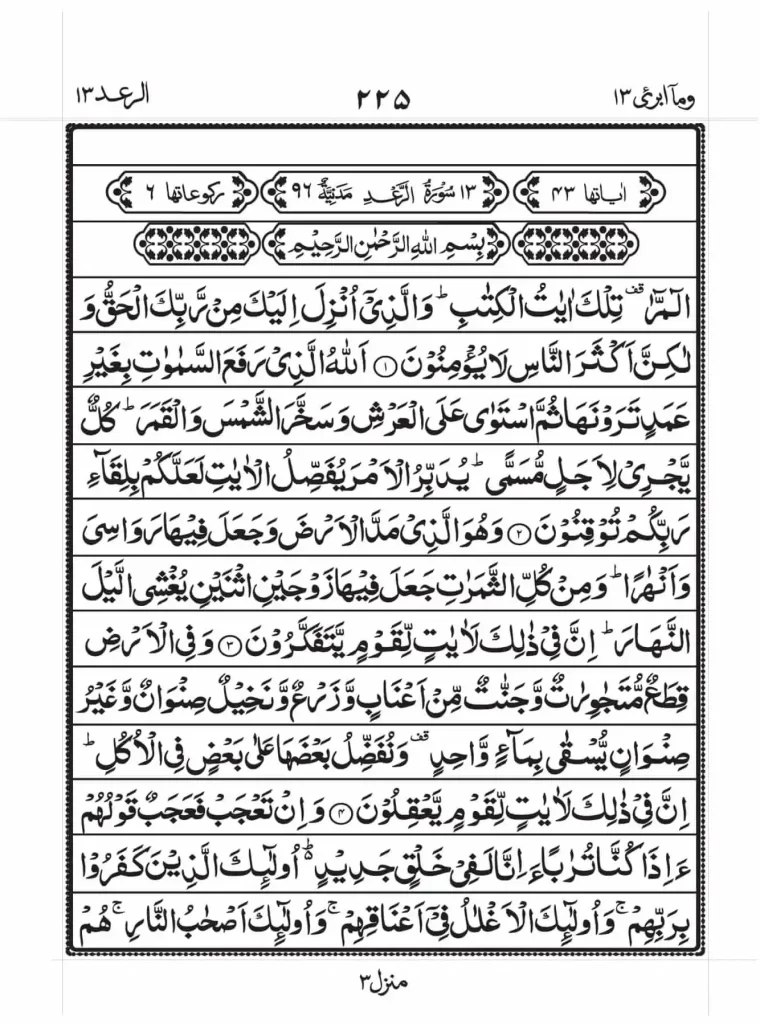 وما ابرئ ١٣ ٢٢٥ الرعد ١٣
اٰیاتها ٤٣ ١٣ سُوْرَةُ الرَّعْدِ مَدَنِیَّةٌ ٩٦ رکوعاتها ٦
بِسْمِ اللّٰهِ الرَّحْمٰنِ الرَّحِیْمِ
الٓمّٓرٰ ۟قف تِلْكَ اٰیٰتُ الْكِتٰبِ ؕ وَالَّذِیْۤ اُنْزِلَ اِلَیْكَ مِنْ رَّبِّكَ الْحَقُّ وَ
لٰكِنَّ اَكْثَرَ النَّاسِ لَا یُؤْمِنُوْنَ ۝١ اَللّٰهُ الَّذِیْ رَفَعَ السَّمٰوٰتِ بِغَیْرِ
عَمَدٍ تَرَوْنَهَا ثُمَّ اسْتَوٰی عَلَی الْعَرْشِ وَسَخَّرَ الشَّمْسَ وَالْقَمَرَ ؕ كُلٌّ
یَّجْرِیْ لِاَجَلٍ مُّسَمًّی ؕ یُدَبِّرُ الْاَمْرَ یُفَصِّلُ الْاٰیٰتِ لَعَلَّكُمْ بِلِقَآءِ
رَبِّكُمْ تُوْقِنُوْنَ ۝٢ وَهُوَ الَّذِیْ مَدَّ الْاَرْضَ وَجَعَلَ فِیْهَا رَوَاسِیَ
وَاَنْهٰرًا ؕ وَمِنْ كُلِّ الثَّمَرٰتِ جَعَلَ فِیْهَا زَوْجَیْنِ اثْنَیْنِ یُغْشِی الَّیْلَ
النَّهَارَ ؕ اِنَّ فِیْ ذٰلِكَ لَاٰیٰتٍ لِّقَوْمٍ یَّتَفَكَّرُوْنَ ۝٣ وَفِی الْاَرْضِ
قِطَعٌ مُّتَجٰوِرٰتٌ وَّجَنّٰتٌ مِّنْ اَعْنَابٍ وَّزَرْعٌ وَّنَخِیْلٌ صِنْوَانٌ وَّغَیْرُ
صِنْوَانٍ یُّسْقٰی بِمَآءٍ وَّاحِدٍ قف وَنُفَضِّلُ بَعْضَهَا عَلٰی بَعْضٍ فِی الْاُكُلِ ؕ
اِنَّ فِیْ ذٰلِكَ لَاٰیٰتٍ لِّقَوْمٍ یَّعْقِلُوْنَ ۝٤ وَاِنْ تَعْجَبْ فَعَجَبٌ قَوْلُهُمْ
ءَاِذَا كُنَّا تُرٰبًا ءَاِنَّا لَفِیْ خَلْقٍ جَدِیْدٍ ؕ۬ اُولٰٓىِٕكَ الَّذِیْنَ كَفَرُوْا
بِرَبِّهِمْ ۚ وَاُولٰٓىِٕكَ الْاَغْلٰلُ فِیْۤ اَعْنَاقِهِمْ ۚ وَاُولٰٓىِٕكَ اَصْحٰبُ النَّارِ ۚ هُمْ
منزل ٣